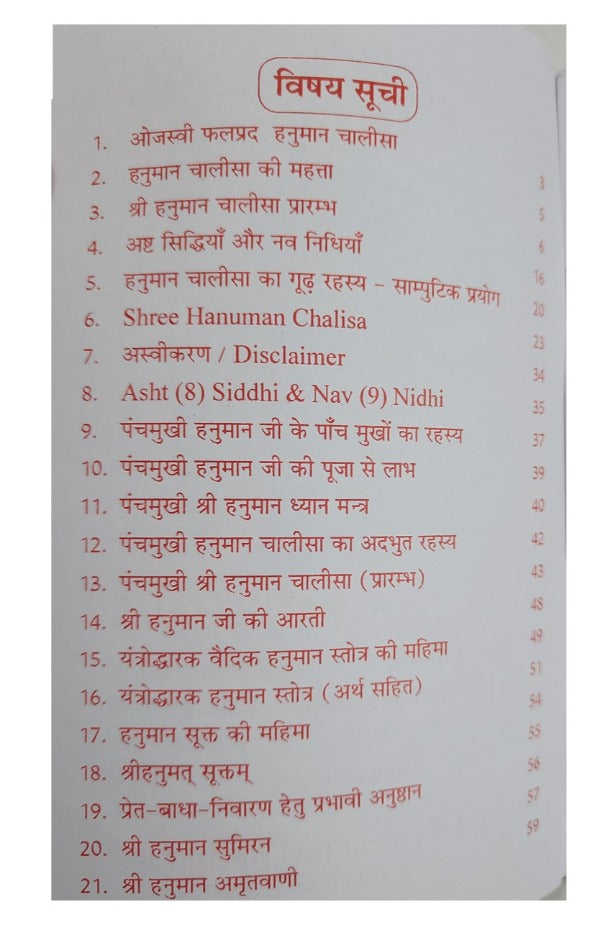 विषय सूची
1. ओजस्वी फलप्रद हनुमान चालीसा 3
2. हनुमान चालीसा की महत्ता 5
3. श्री हनुमान चालीसा प्रारम्भ 6
4. अष्ट सिद्धियाँ और नव निधियाँ 16
5. हनुमान चालीसा का गूढ़ रहस्य - साम्पुटिक प्रयोग 20
6. Shree Hanuman Chalisa 23
7. अस्वीकरण / Disclaimer 34
8. Asht (8) Siddhi & Nav (9) Nidhi 35
9. पंचमुखी हनुमान जी के पाँच मुखों का रहस्य 37
10. पंचमुखी हनुमान जी की पूजा से लाभ 39
11. पंचमुखी श्री हनुमान ध्यान मन्त्र 40
12. पंचमुखी हनुमान चालीसा का अदभुत रहस्य 42
13. पंचमुखी श्री हनुमान चालीसा (प्रारम्भ) 43
14. श्री हनुमान जी की आरती 48
15. यंत्रोद्धारक वैदिक हनुमान स्तोत्र की महिमा 49
16. यंत्रोद्धारक हनुमान स्तोत्र (अर्थ सहित) 51
17. हनुमान सूक्त की महिमा 54
18. श्रीहनुमत् सूक्तम् 55
19. प्रेत-बाधा-निवारण हेतु प्रभावी अनुष्ठान 56
20. श्री हनुमान सुमिरन 57
21. श्री हनुमान अमृतवाणी 59